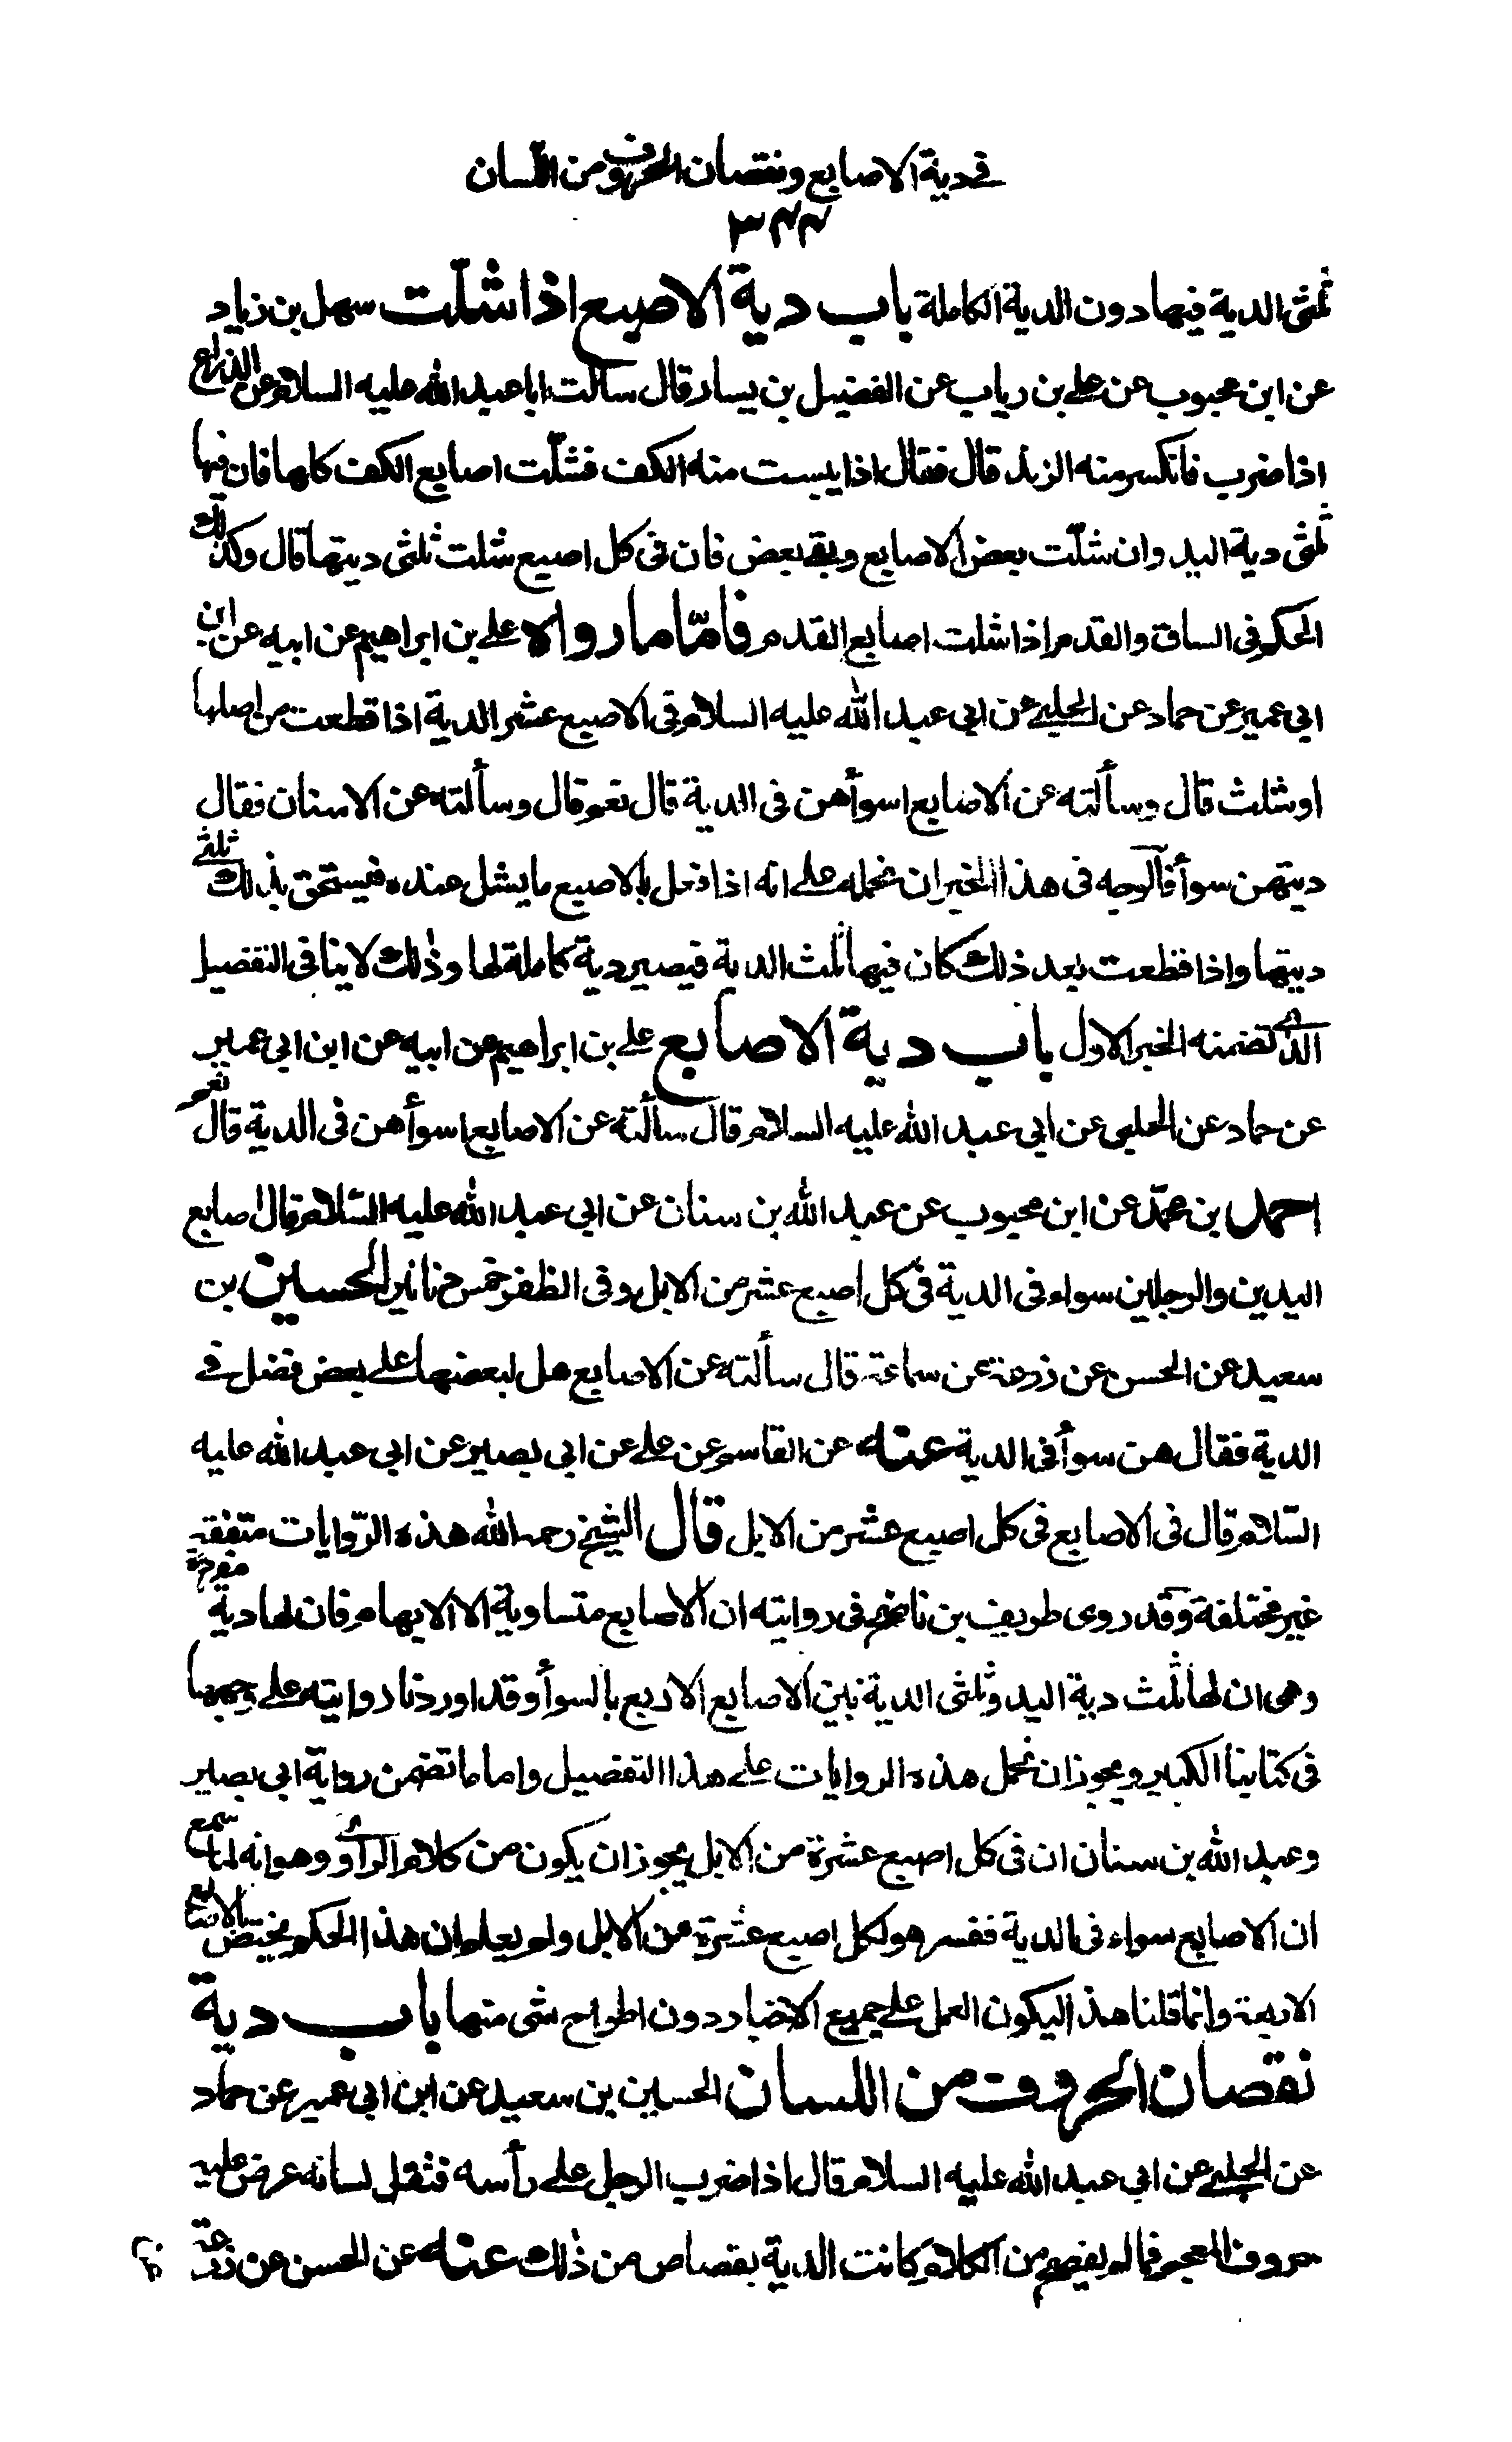 في دية الاصابع ونقصان الحروف من اللسان
٣٤٤
ثلثى الدية فيها دون الدية الكاملة باب دية الاصبع اذا شلّت سهل بن زياد
عن ابن محبوب عن على بن رياب عن الفضيل بن يسار قال سالت ابا عبد الله عليه السلام عن الذراع
اذا ضرب فانكسر منه الزند قال فقال اذا يبست منه الكف فشلّت اصابع الكف كلها فان فيها
ثلثى دية اليد وان شلّت بعض الاصابع وبقى بعض فان فى كل اصبع شلت ثلثى ديتها قال وكذلك
الحكم فى الساق والقدم اذا شلت اصابع القدم فامّا ما رواه على بن ابراهيم عن ابيه عن ابن
ابي عمير عن حماد عن الحلبي عن ابي عبد الله عليه السلام فى الاصبع عشر الدية اذا قطعت من اصلها
او شلت قال وسألته عن الاصابع اسوأ هن فى الدية قال نعم قال وسألته عن الاسنان فقال
ديتهن سوأ فالوجه فى هذا الخبر ان نحمله على انه اذا فعل بالاصبع ما يشل عنده فيستحق بذلك ثلثي
ديتها واذا قطعت بعد ذلك كان فيها ثلث الدية فيصير دية كاملة لها وذلك لا ينافى التفصيل
الذى تضمنه الخبر الاول باب دية الاصابع على بن ابراهيم عن ابيه عن ابن ابي عمير
عن حماد عن الحلبى عن ابي عبد الله عليه السلام قال سألته عن الاصابع اسوأ هن فى الدية قال نعم
احمد بن محمّد عن ابن محبوب عن عبد الله بن سنان عن ابي عبد الله عليه السّلام قال اصابع
اليدين والرجلين سواء فى الدية فى كل اصبع عشر من الابل وفى الظفر خمس دنانير الحسين بن
سعيد عن الحسن عن زرعة عن سماعة قال سألته عن الاصابع هل لبعضها على بعض فضل في
الدية فقال هن سوأ فى الدية عنه عن القاسم عن على عن ابى بصير عن ابى عبد الله عليه
السّلام قال فى الاصابع فى كل اصبع عشر من الابل قال الشيخ رحمه الله هذه الرّوايات متفقة
غير مختلفة وقد روى طريف بن ناصح فى روايته ان الاصابع متساوية الا الابهام فان لها دية مفردة
وهى ان لها ثلث دية اليد وثلثى الدية بين الاصابع الاربع بالسوأ وقد اوردنا روايته على وجهها
فى كتابنا الكبير ويجوز ان نحمل هذه الروايات على هذا التفصيل واما ما تضمن رواية ابى بصير
وعبد الله بن سنان ان فى كل اصبع عشرة من الابل يجوز ان يكون من كلام الراوى وهو انه لما سمع
ان الاصابع سواء فى الدية ففسر هو لكل اصبع عشرة من الابل ولم يعلم ان هذا الحكم يختص بالاصابع
الاربعة وانما قلنا هذا ليكون العمل على جميع الاخبار دون اطراح شى منها باب دية
نقصان الحروف من اللسان الحسين بن سعيد عن ابن ابى عمير عن حماد
عن الحلبي عن ابي عبد الله عليه السلام قال اذا ضرب الرجل على رأسه فثقل لسانه عرض عليه
حروف المعجم فما لم يفصح من الكلام كانت الدية بقصاص من ذلك عنه عن الحسن عن زرعة